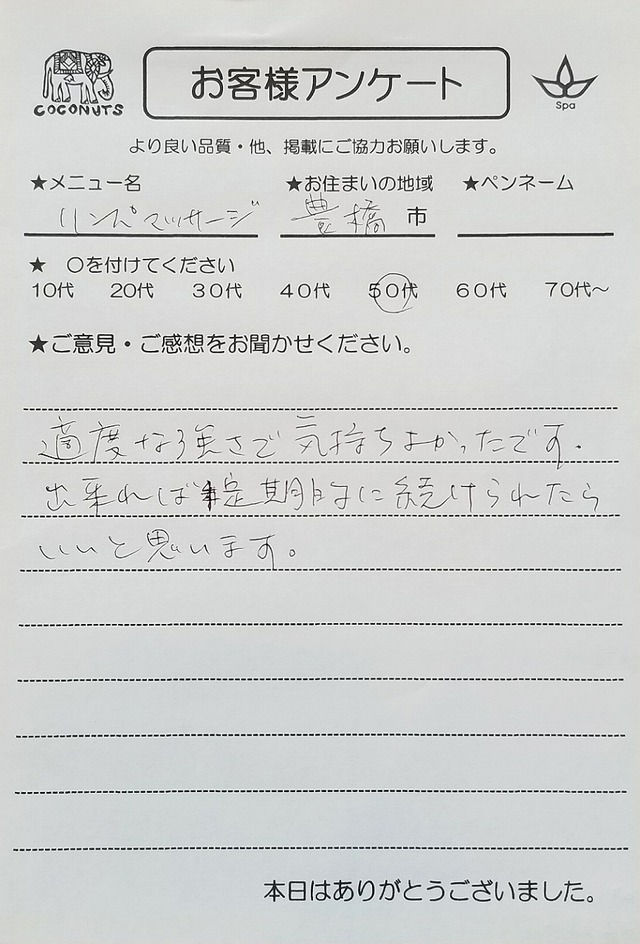 COCONUTS
お客様アンケート
Spa
より良い品質・他、掲載にご協力お願いします。
★メニュー名 ★お住まいの地域 ★ペンネーム
リンパマッサージ 豊橋 市
★ 〇を付けてください
10代 20代 30代 40代 50代 60代 70代～
★ご意見・ご感想をお聞かせください。
適度な強さで気持ちよかったです。
出来れば定期的に続けられたら
いいと思います。
本日はありがとうございました。